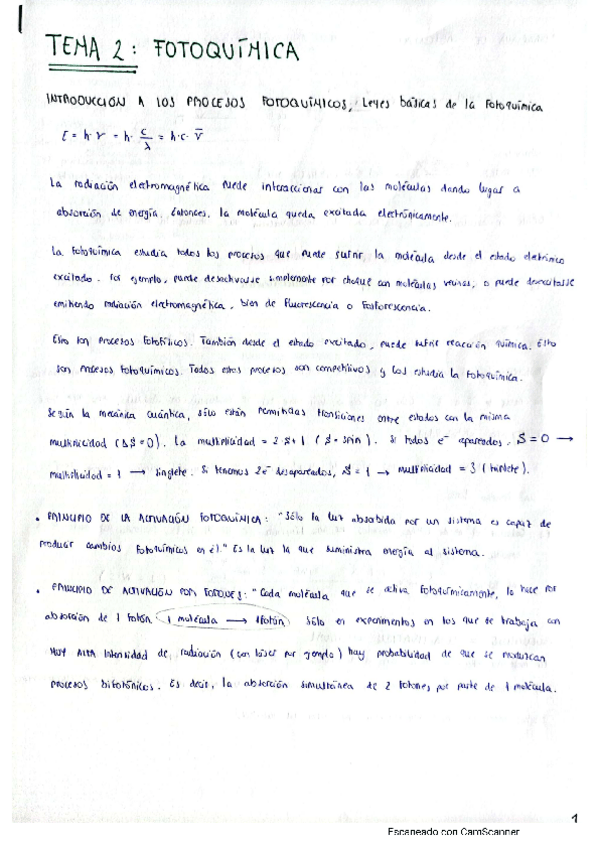 TEMA 2: FOTOQUÍMICA
INTRODUCCIÓN A LOS PROCESOS FOTOQUÍMICOS, Leyes básicas de la Fotoquímica
E = h·ν = h· c/λ = h·c· ν̄
La radiación electromagnética puede interaccionar con las moléculas dando lugar a
absorción de energía. Entonces, la molécula queda excitada electrónicamente.
La Fotoquímica estudia todos los procesos que puede sufrir la molécula desde el estado electrónico
excitado. Por ejemplo, puede desactivarse simplemente por choque con moléculas vecinas, o puede desexcitarse
emitiendo radiación electromagnética, bien de Fluorescencia o Fosforescencia.
Esto son procesos Fotofísicos. También desde el estado excitado, puede sufrir reacción química. Esto
son procesos Fotoquímicos. Todos estos procesos son competitivos y los estudia la Fotoquímica.
Según la mecánica cuántica, sólo están permitidas transiciones entre estados con la misma
multiplicidad (ΔS=0). La multiplicidad = 2S+1 (S=spin). Si todos e⁻ apareados, S=0 →
multiplicidad = 1 → singlete. Si tenemos 2e⁻ desapareados, S=1 → multiplicidad = 3 (triplete).
• PRINCIPIO DE LA ACTIVACIÓN FOTOQUÍMICA: "Sólo la luz absorbida por un sistema es capaz de
producir cambios fotoquímicos en él." Es la luz la que suministra energía al sistema.
• PRINCIPIO DE ACTIVACIÓN POR FOTONES: "Cada molécula que se activa fotoquímicamente, lo hace por
absorción de 1 fotón (1 molécula → 1 fotón) Sólo en experimentos en los que se trabaja con
MUY ALTA intensidad de radiación (con láser por ejemplo) hay probabilidad de que se produzcan
procesos bifotónicos. Es decir, la absorción simultánea de 2 fotones por parte de 1 molécula.
1
Escaneado con CamScanner